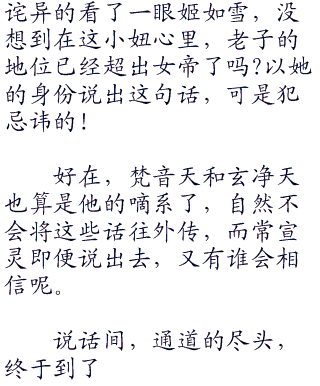 诧异的看了一眼姬如雪，没
想到在这小妞心里，老子的
地位已经超出女帝了吗?以她
的身份说出这句话，可是犯
忌讳的!
好在，梵音天和玄净天
也算是他的嘀系了，自然不
会将这些话往外传，而常宣
灵即便说出去，又有谁会相
信呢。
说话间，通道的尽头，
终于到了